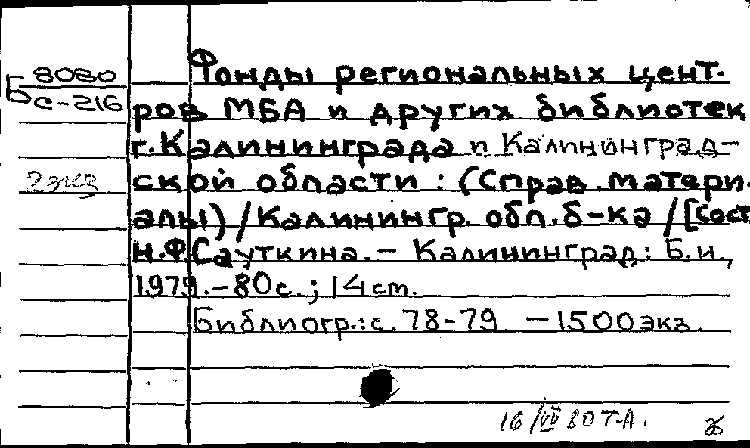 Б 8080
с-216
2 экз
Фонды региональных цент-
ров МБА и других библиотек
г. Калининграда и Калининград-
ской области : (Справ. матери-
алы) / Калинингр. обл. б-ка / [Сост.
Н.Ф. Сауткина. - Калининград: Б.и.,
1979. - 80 с. ; 14 см.
Библиогр.: с. 78-79 - 1500 экз.
16/VII 80 Т-А.